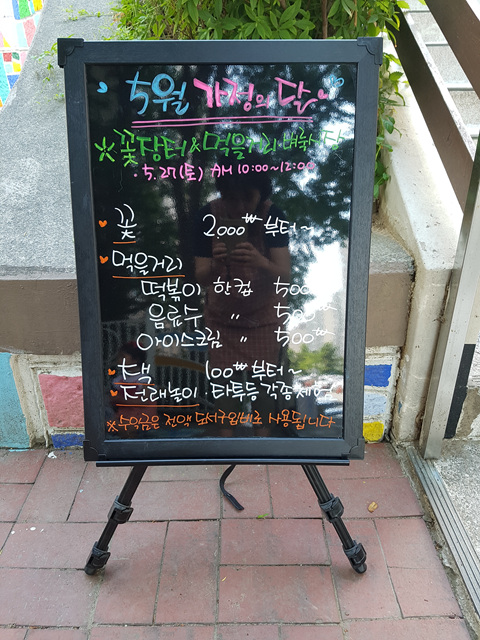 5월 가정의 달
※ 꽃장터 & 먹을거리 벼룩시장
· 5.27(토) AM 10:00~12:00
꽃 2000₩부터~
먹을거리
떡볶이 한컵 500₩
음료수 〃 500₩
아이스크림 〃 500₩
· 책 100₩부터~
· 전래놀이 · 타투등 각종체험
※수익금은 전액 도서구입비로 사용됩니다